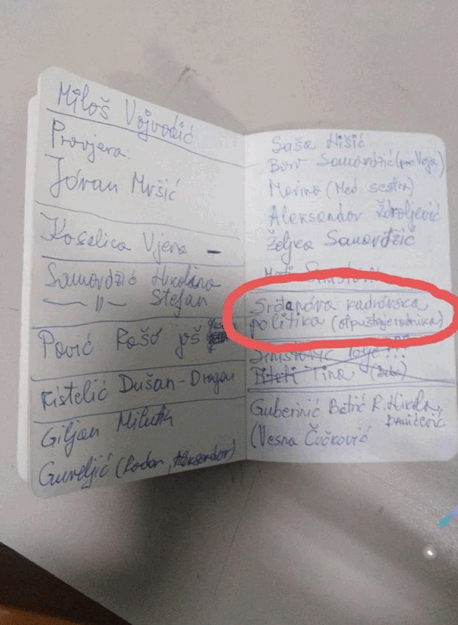 Miloš Vojvodić
Provjera
Jovan Mršić
Koselica Vjera –
Samardžić Nikolana
— 11 — Stefan
Pović Rašo pš
Kistelić Dušan - Dragan
Giljan Milutin
Gureljić (Radan, Aleksandar)
Saša Mišić
Boro Samardžić (
Marina (Med. sestra)
Aleksandar Ždraljević
Željka Samardžić
Srđanova kadrovska
politika (otpuštanje radnika)
Tina
Guberinić Betić R. Nikola,
Danićević
(Vesna Čučković